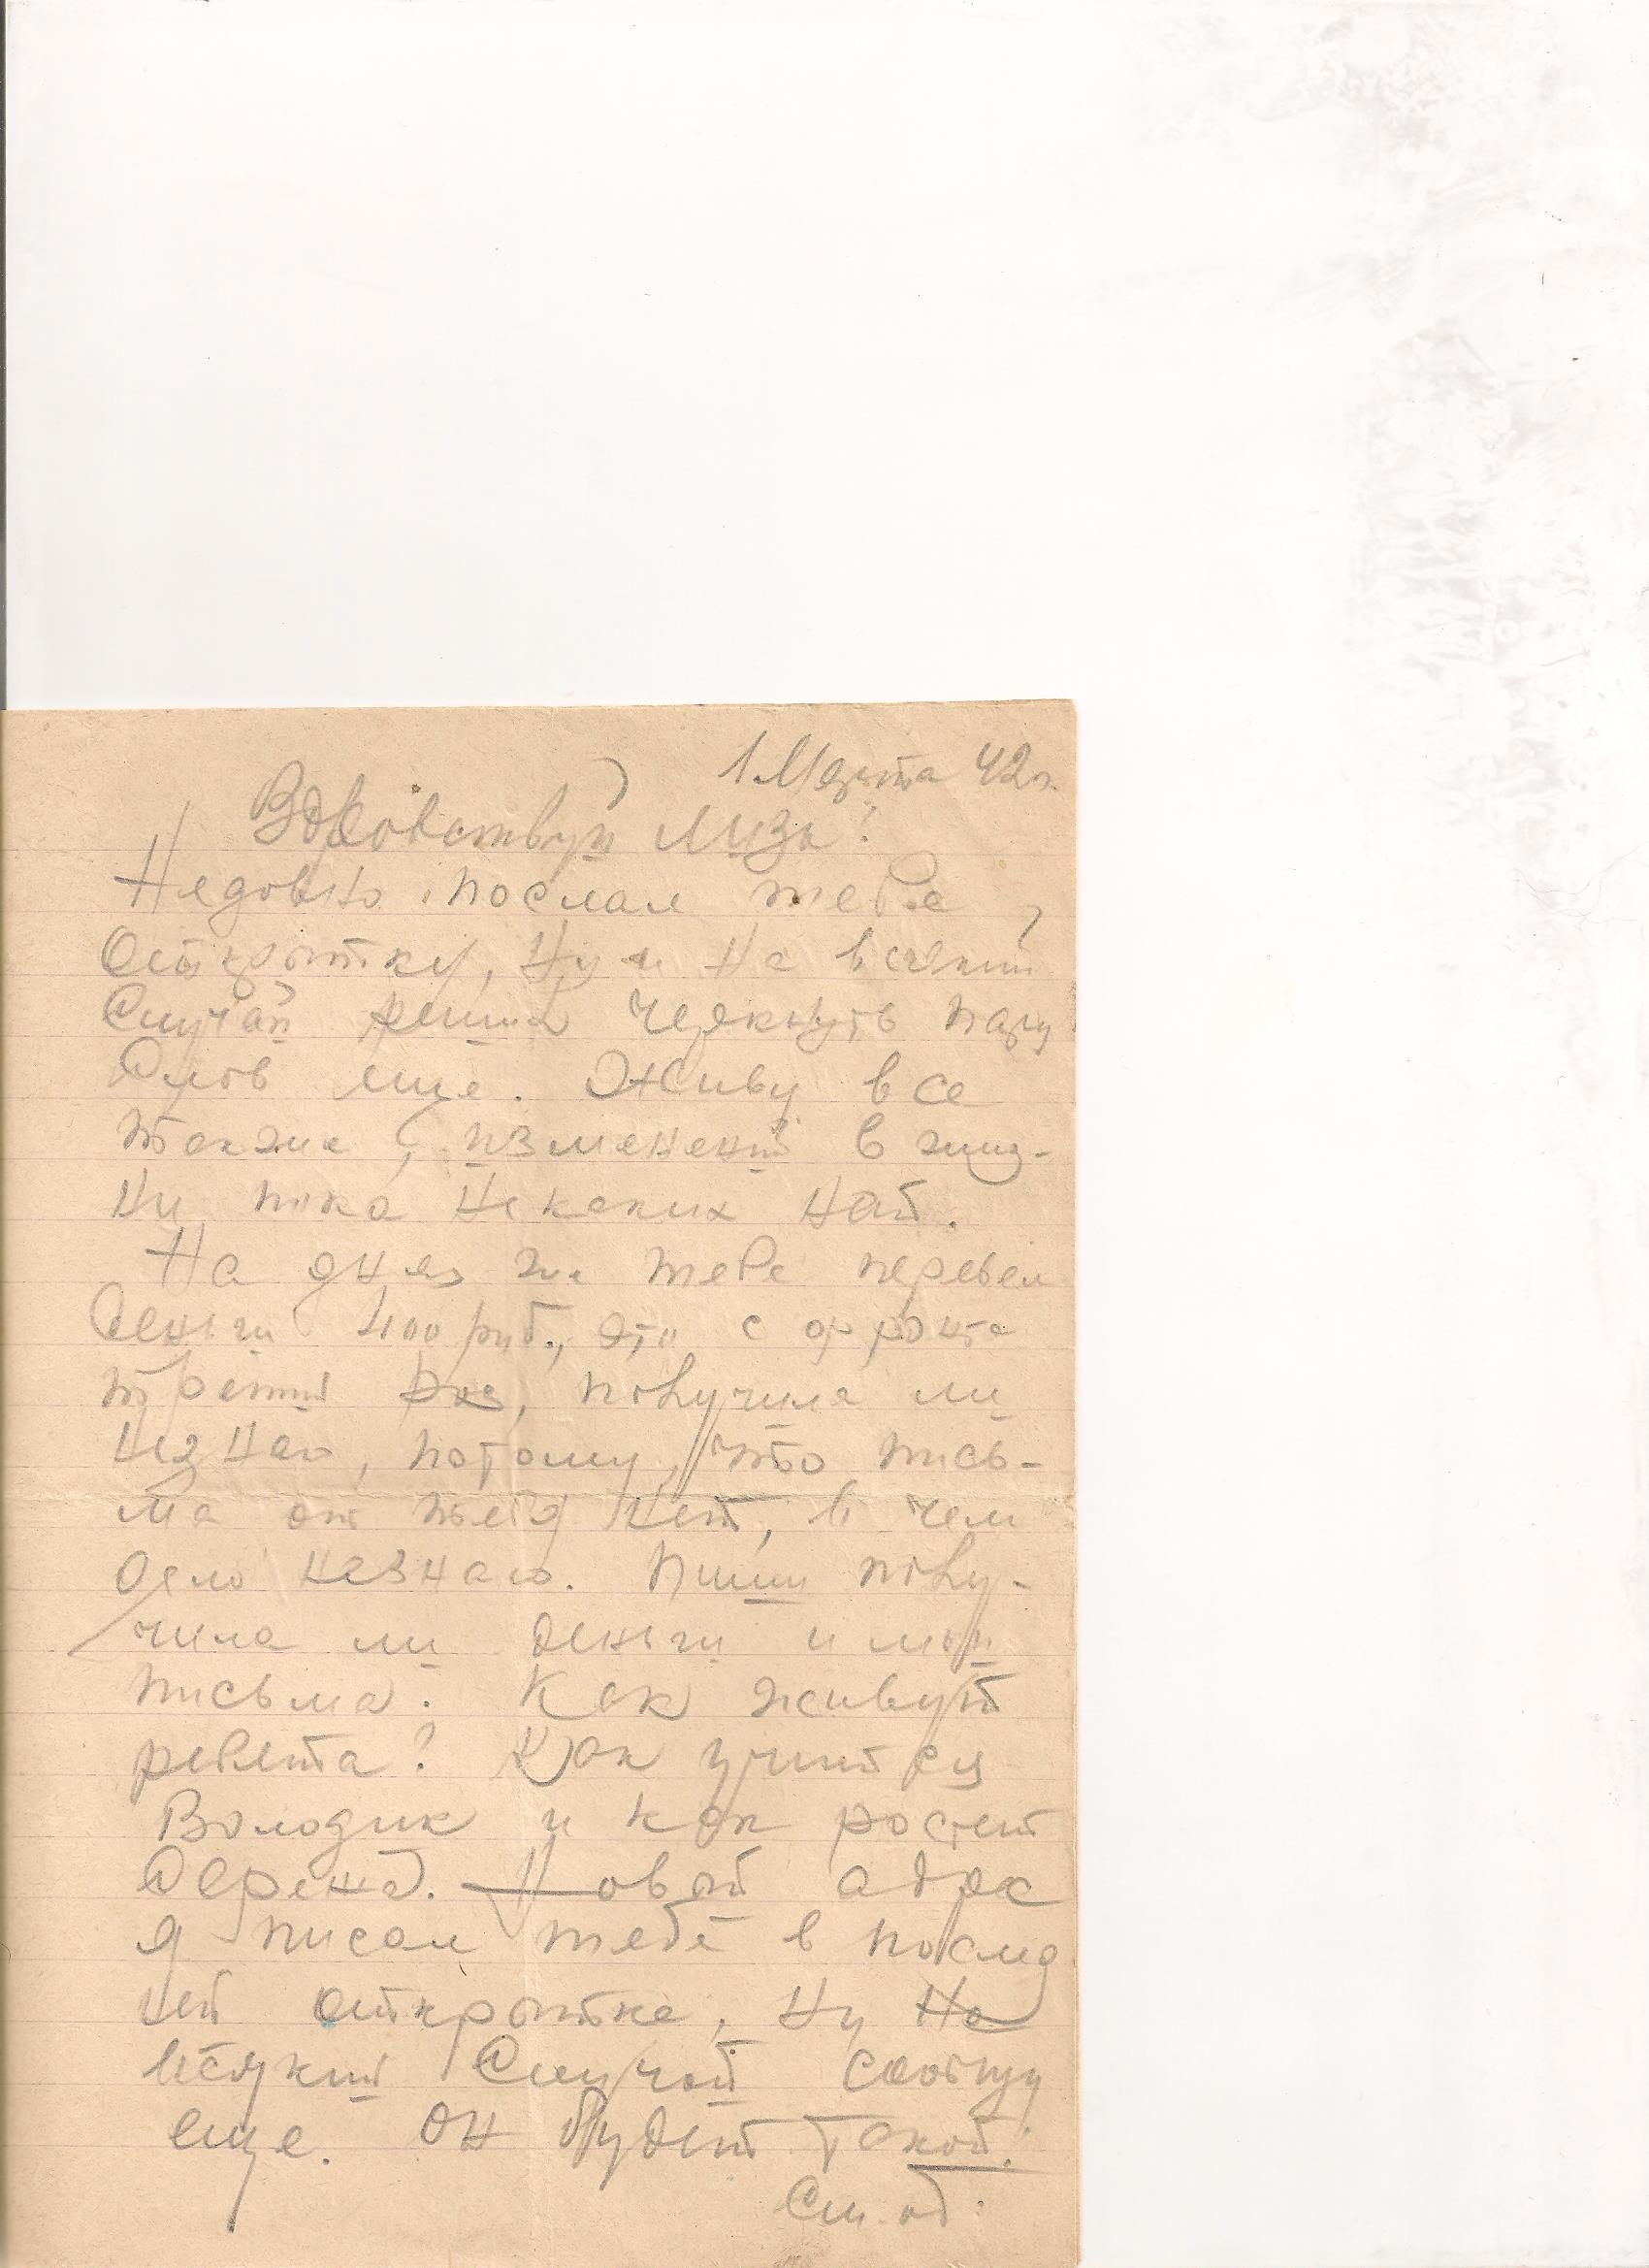 1 Марта 42 г.
Здравствуй Лиза!
Недовно послал тебе
Открытку, Ну и на всякий
Случай решил черкнуть пару
Слов еще. Живу все
также, изменений в жиз-
ни пока некаких нет.
На днях же тебе перевел
Деньги 400 руб., это с фронта
третий раз, получила ли
незнаю, потому, что пись-
ма от тебя нет, в чем
дело незнаю. Пиши полу-
чила ли деньги и мои
письма. Как живут
ребята? Как учится
Володик и как ростет
Сережа. Новой адрес
я писал тебе в послед
ней открытке, Ну На
всякий Случай сообщу
еще. Он будет такой:
См. об: